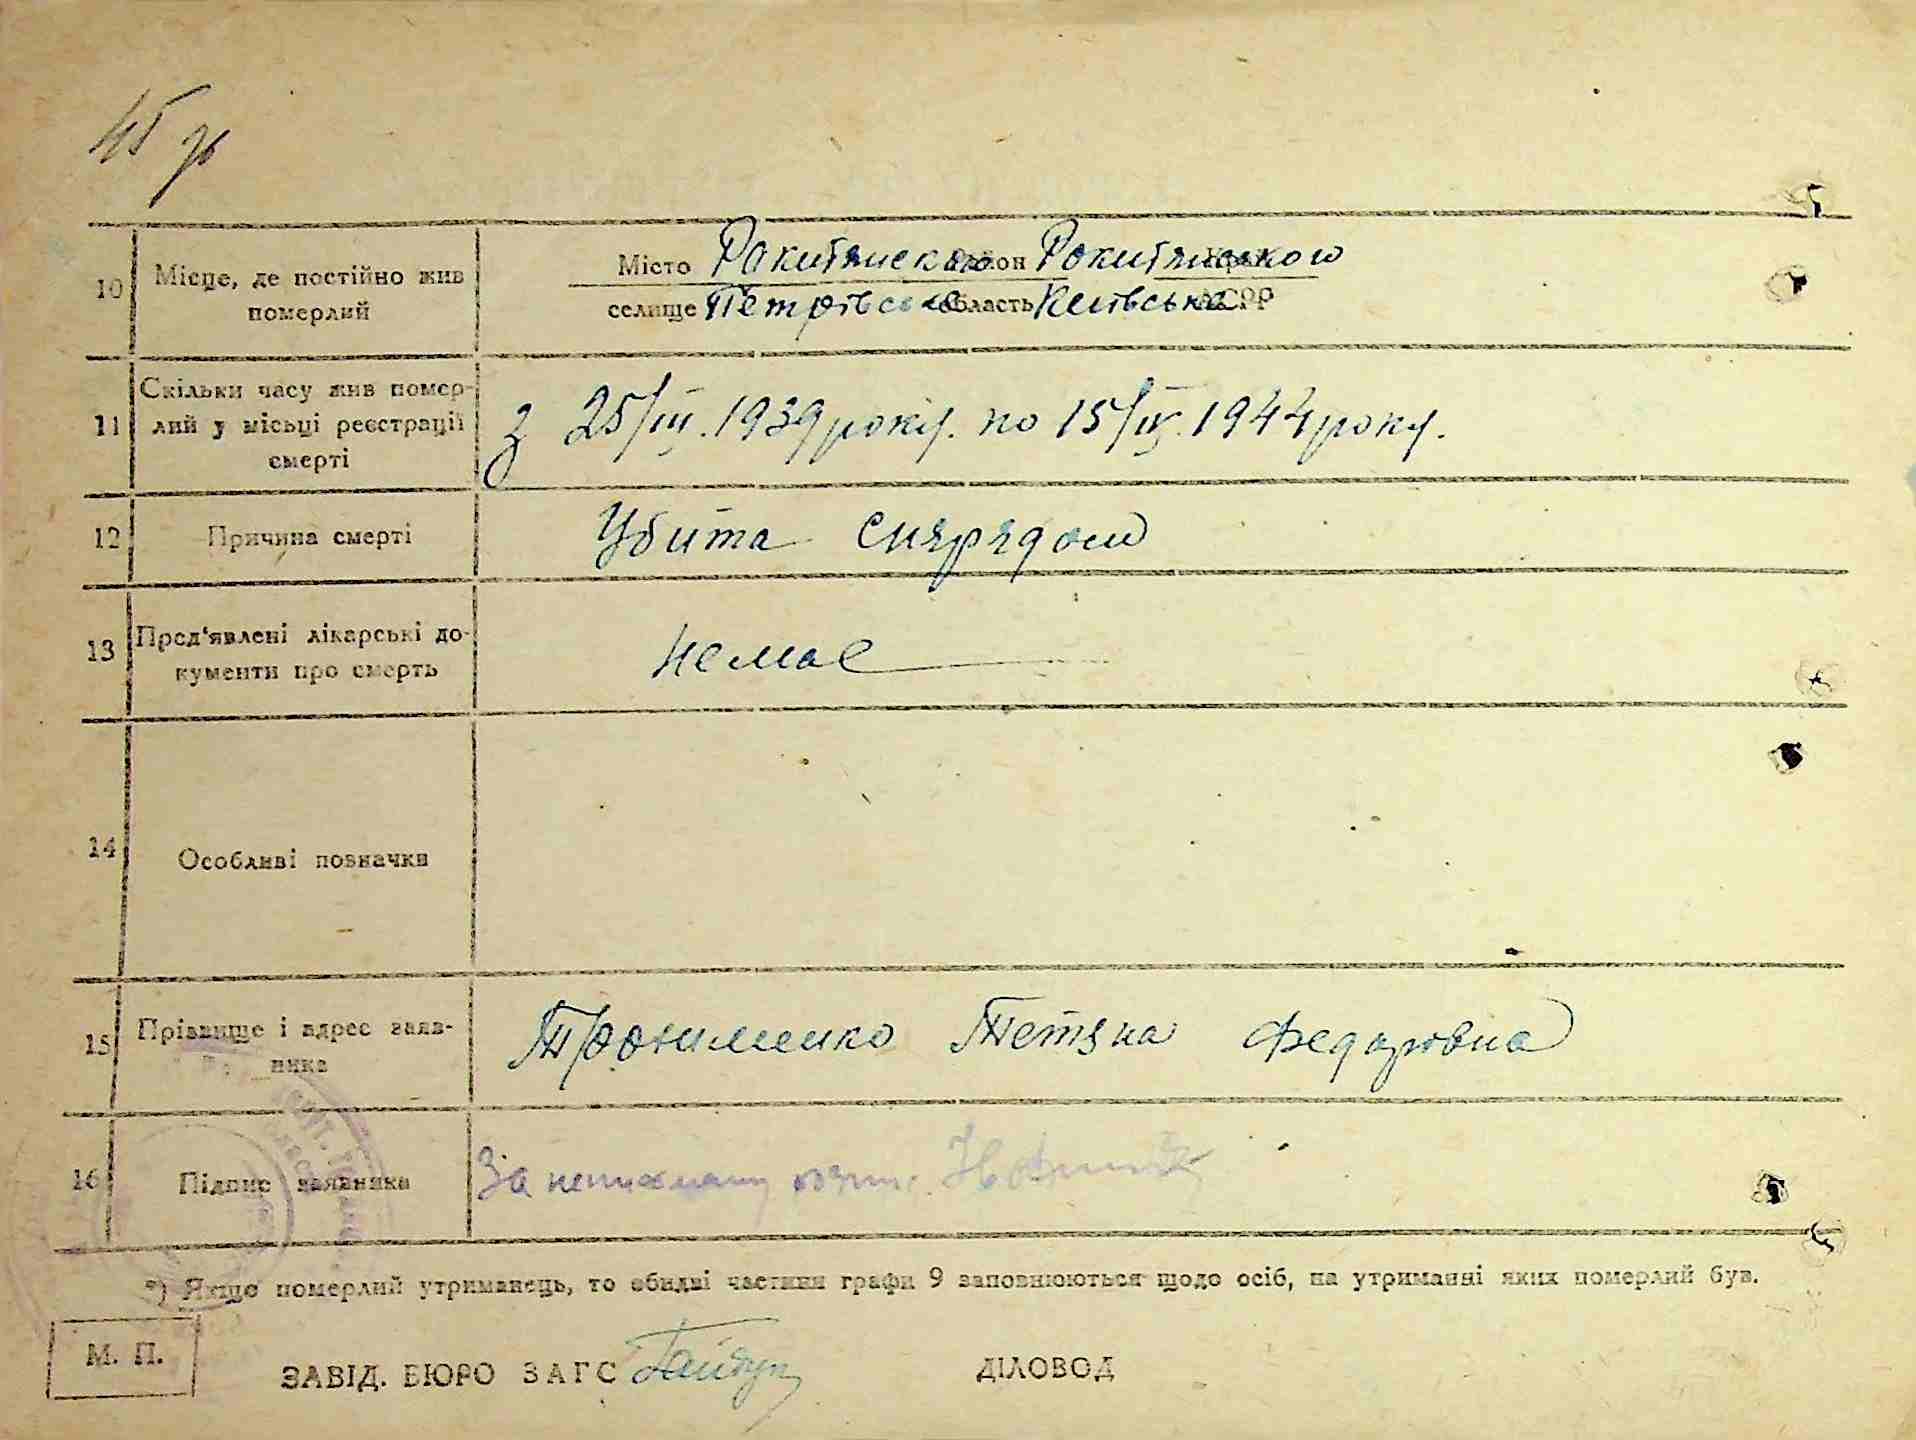 45 գ
10 Місце, де постійно жив
померлий
Місто Ракитянского район Рокитянського
селище Петрівська область Київська АСРР
11 Скільки часу жив помер-
лий у місьці реєстрації
смерті
з 25/III. 1939 року. по 15/IV. 1944 року.
12 Причина смерті
Убита снярядом
13 Пред'явлені лікарські до-
кументи про смерть
немає
14 Особливі позначки
15 Прізвище і адрес заяв-
ника
Трохименко Тетяна Федоровна
16 Підпис заявника
За неписьмену
*) Якщо померлий утриманець, то обидві частини графи 9 заповнюються щодо осіб, на утриманні яких померлий був.
М. П.
ЗАВІД. БЮРО ЗАГС
ДІЛОВОД